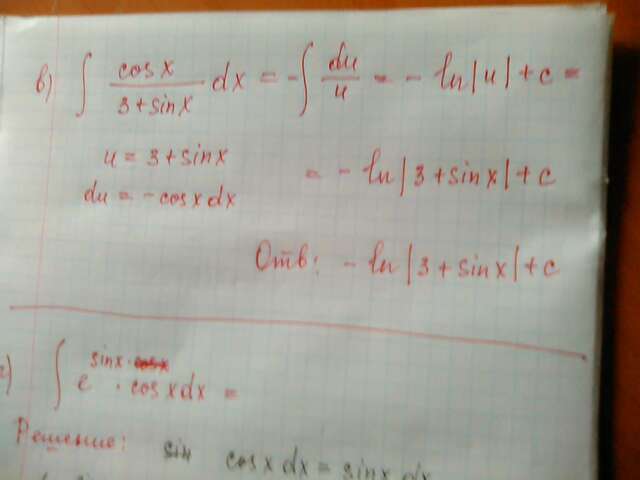 в) ∫ cosx / 3+sinx dx = -∫ du/u = - ln|u|+c =
u = 3+sinx
= - ln|3+sinx|+c
du = -cosxdx
Отв: - ln|3+sinx|+c
г) ∫ e^sinx · cosxdx =
Решение:
sin cosxdx = sinx dx